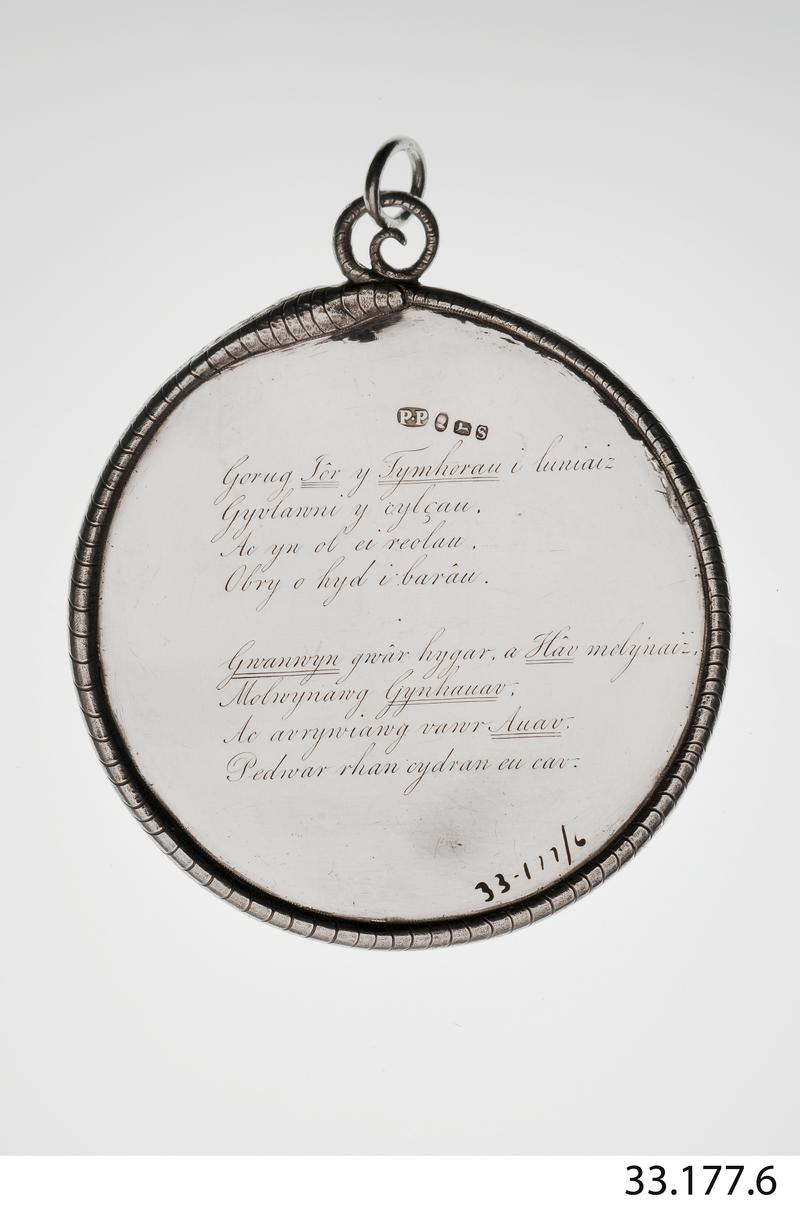 P·P L S
Gorug Iôr y Tymhorau i luniaiz
Gyvlawni y cylçau,
Ac yn ol ei reolau,
Obry o hyd i barâu.
Gwanwyn gwâr hygar, a Hâv melynaiz,
Molwynawg Gynhauav,
Ac avrywiawg vawr Auav.
Pedwar rhan cydran eu cav.
33-177/6
33.177.6